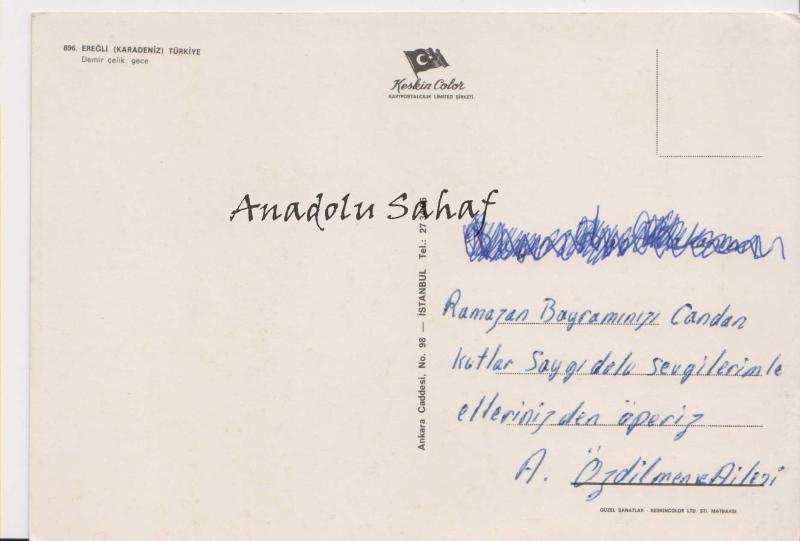 896. EREĞLİ (KARADENİZ) TÜRKİYE
Demir çelik, gece
Keskin Color
KARTPOSTALCILIK LIMITED ŞİRKETİ
Anadolu Sahaf
Ankara Caddesi, No. 98 — İSTANBUL Tel.: 27
Ramazan Bayramınızı Candan
kutlar Saygı dolu sevgilerimle
ellerinizden öperiz
A. Özdilmen ve Ailesi
GÜZEL SANATLAR - KESKİNCOLOR LTD. ŞTİ. MATBAASI